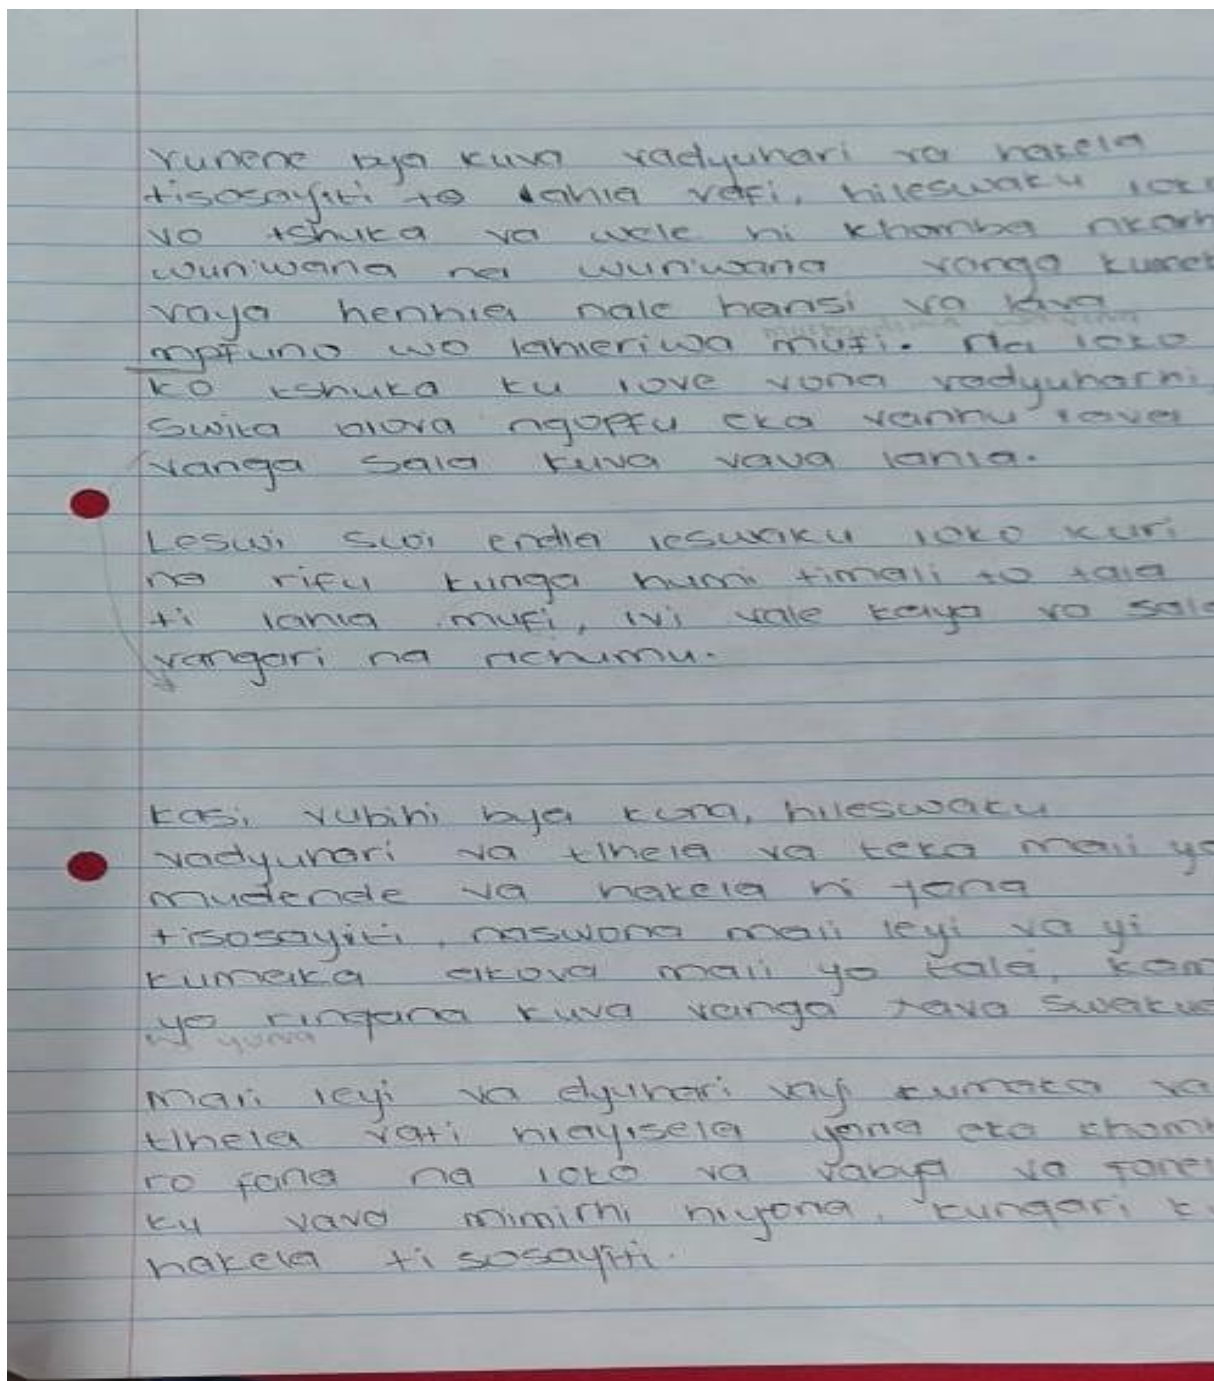 Vunene bya kuva vadyuhari va hakela
tisosayiti to lahla vafi, hileswaku loko
vo tshuka va wele hi khombo nkarhi
wun'wana na wun'wana vanga kumek
vaya henhla nale hansi va lava
mpfuno wo lahleriwa mufi. Na loko
ko tshuka ku love vona vadyuharhi
Swita olova ngopfu eka vanhu lava
vanga sala kuva vava lahla.
Leswi swi endla leswaku loko kuri
na rifu kunga humi timali to tala
ti lahla mufi, ivi vale kaya vo sala
vangari na nchumu.
kasi, vubihi bya kona, hileswaku
vadyuhari va tlhela va teka mali yo
mudende va hakela hi yona
tisosayiti, naswona mali leyi va yi
kumaka akova mali yo tala, kam
yo ringana kuva vanga tava swakud
yona
Mari leyi va dyuhari vayi kumaka va
tlhela vati hlayisela yona eka khomb
ro fana na loko va vabya va fanel
ku vava mimirhi hiyona, kungari k
hakela ti sosayiti.